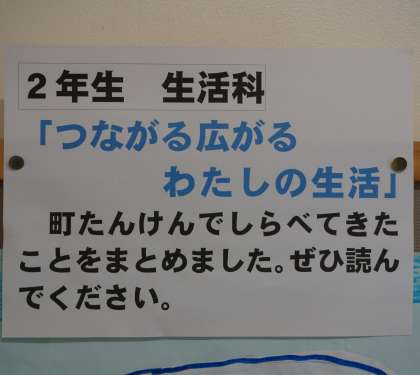 ２年生　生活科
「つながる広がる
わたしの生活」
町たんけんでしらべてきた
ことをまとめました。ぜひ読ん
でください。